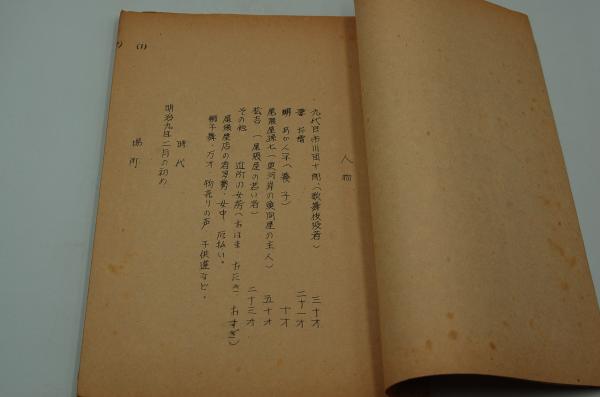 人物
九代目市川団十郎(歌舞伎役者) 三十才
妻 お 二十一才
娘 あかん平(養子) 十才
尾張屋孫七(魚河岸の魚問屋の主人) 五十才
吉(尾張屋の若い者) 二十三才
その他 近所の女房(おはま おたき おすぎ)
尾張屋店の若者・女中 厄払い。
獅子舞・万才 物売りの声 子供達など。
時代
明治九年二月の初め
場所
(1)